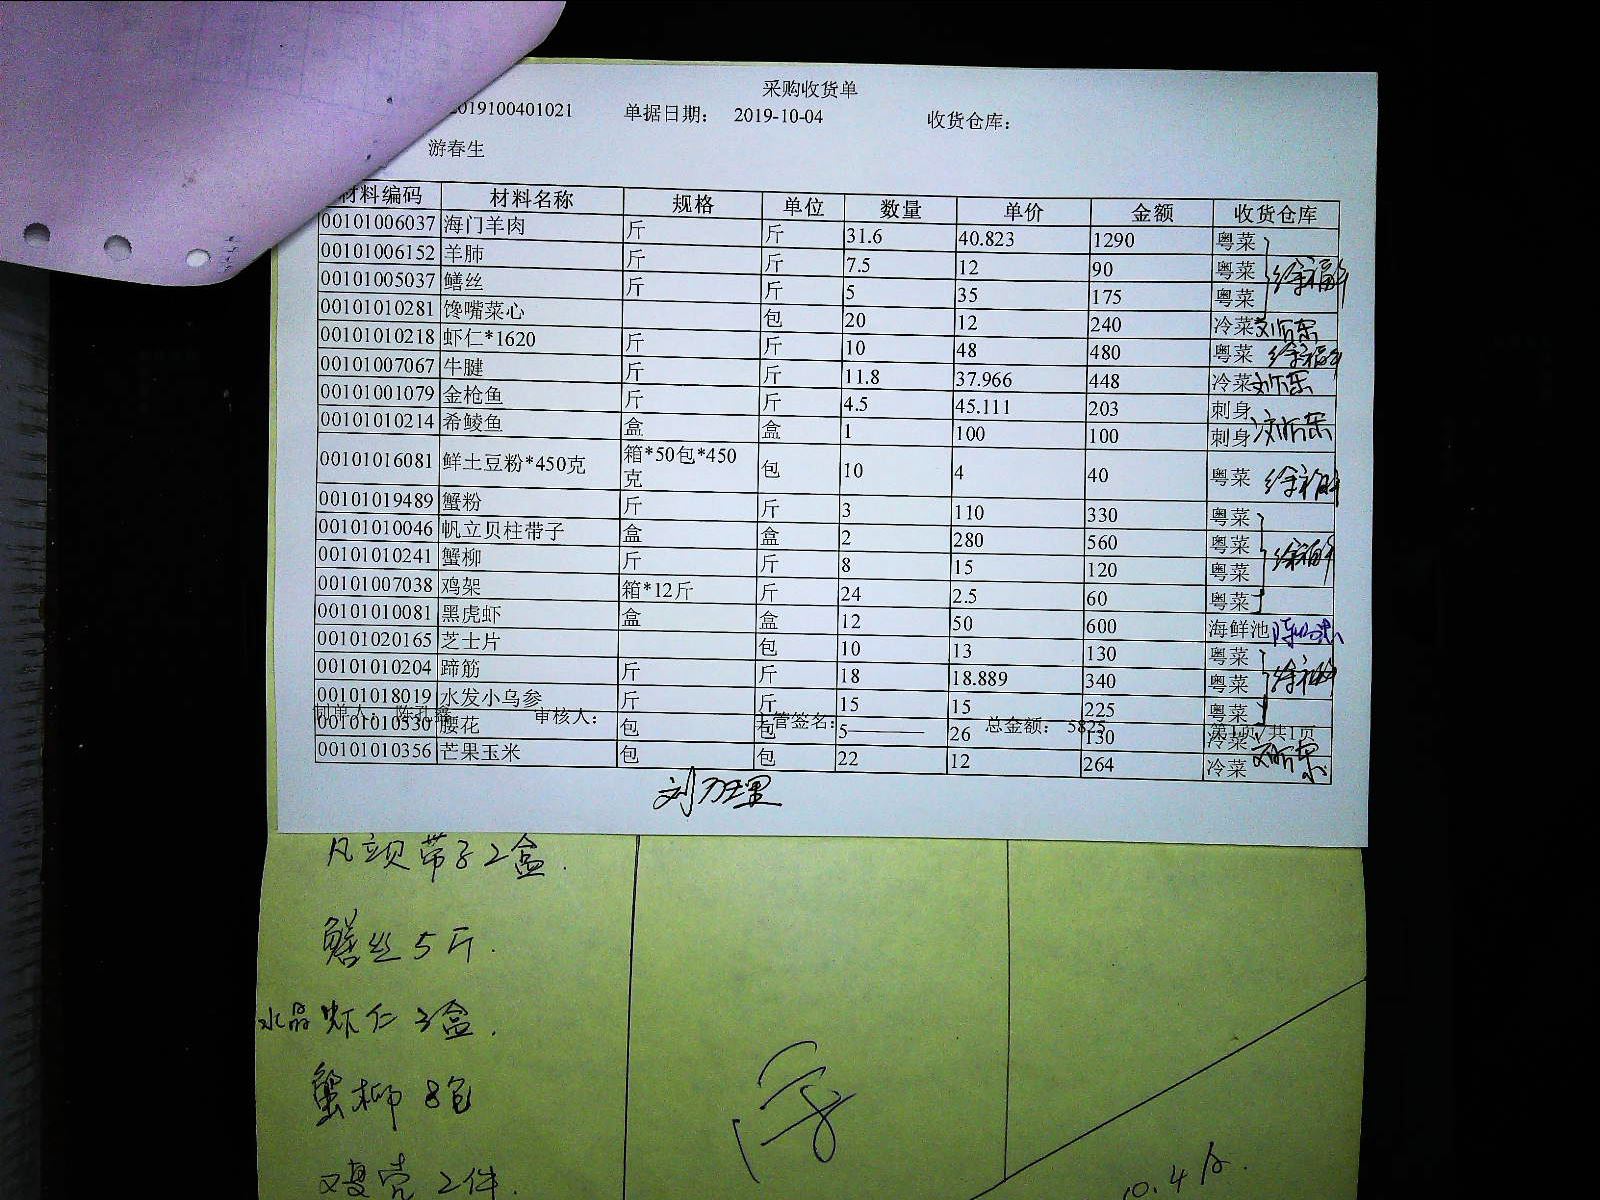 采购收货单
2019100401021 单据日期： 2019-10-04 收货仓库：
游春生
材料编码 材料名称 规格 单位 数量 单价 金额 收货仓库
00101006037 海门羊肉 斤 斤 31.6 40.823 1290 粤菜
00101006152 羊肺 斤 斤 7.5 12 90 粤菜
00101005037 鳝丝 斤 斤 5 35 175 粤菜
00101010281 馋嘴菜心 包 20 12 240 冷菜
00101010218 虾仁*1620 斤 斤 10 48 480 粤菜
00101007067 牛腱 斤 斤 11.8 37.966 448 冷菜
00101001079 金枪鱼 斤 斤 4.5 45.111 203 刺身
00101010214 希鲮鱼 盒 盒 1 100 100 刺身
00101016081 鲜土豆粉*450克 箱*50包*450克 包 10 4 40 粤菜
00101019489 蟹粉 斤 斤 3 110 330 粤菜
00101010046 帆立贝柱带子 盒 盒 2 280 560 粤菜
00101010241 蟹柳 斤 斤 8 15 120 粤菜
00101007038 鸡架 箱*12斤 斤 24 2.5 60 粤菜
00101010081 黑虎虾 盒 盒 12 50 600 海鲜池
00101020165 芝士片 包 10 13 130 粤菜
00101010204 蹄筋 斤 斤 18 18.889 340 粤菜
00101018019 水发小乌参 斤 斤 15 15 225 粤菜
审核人： 主管签名： 总金额： 5825 第1页/共1页
00101010530 腰花 包 包 5 26 130 冷菜
00101010356 芒果玉米 包 包 22 12 264 冷菜
刘万理
凡立贝带子2盒.
鳝丝5斤.
水晶虾仁3盒.
蟹柳8包
2件.
10.4